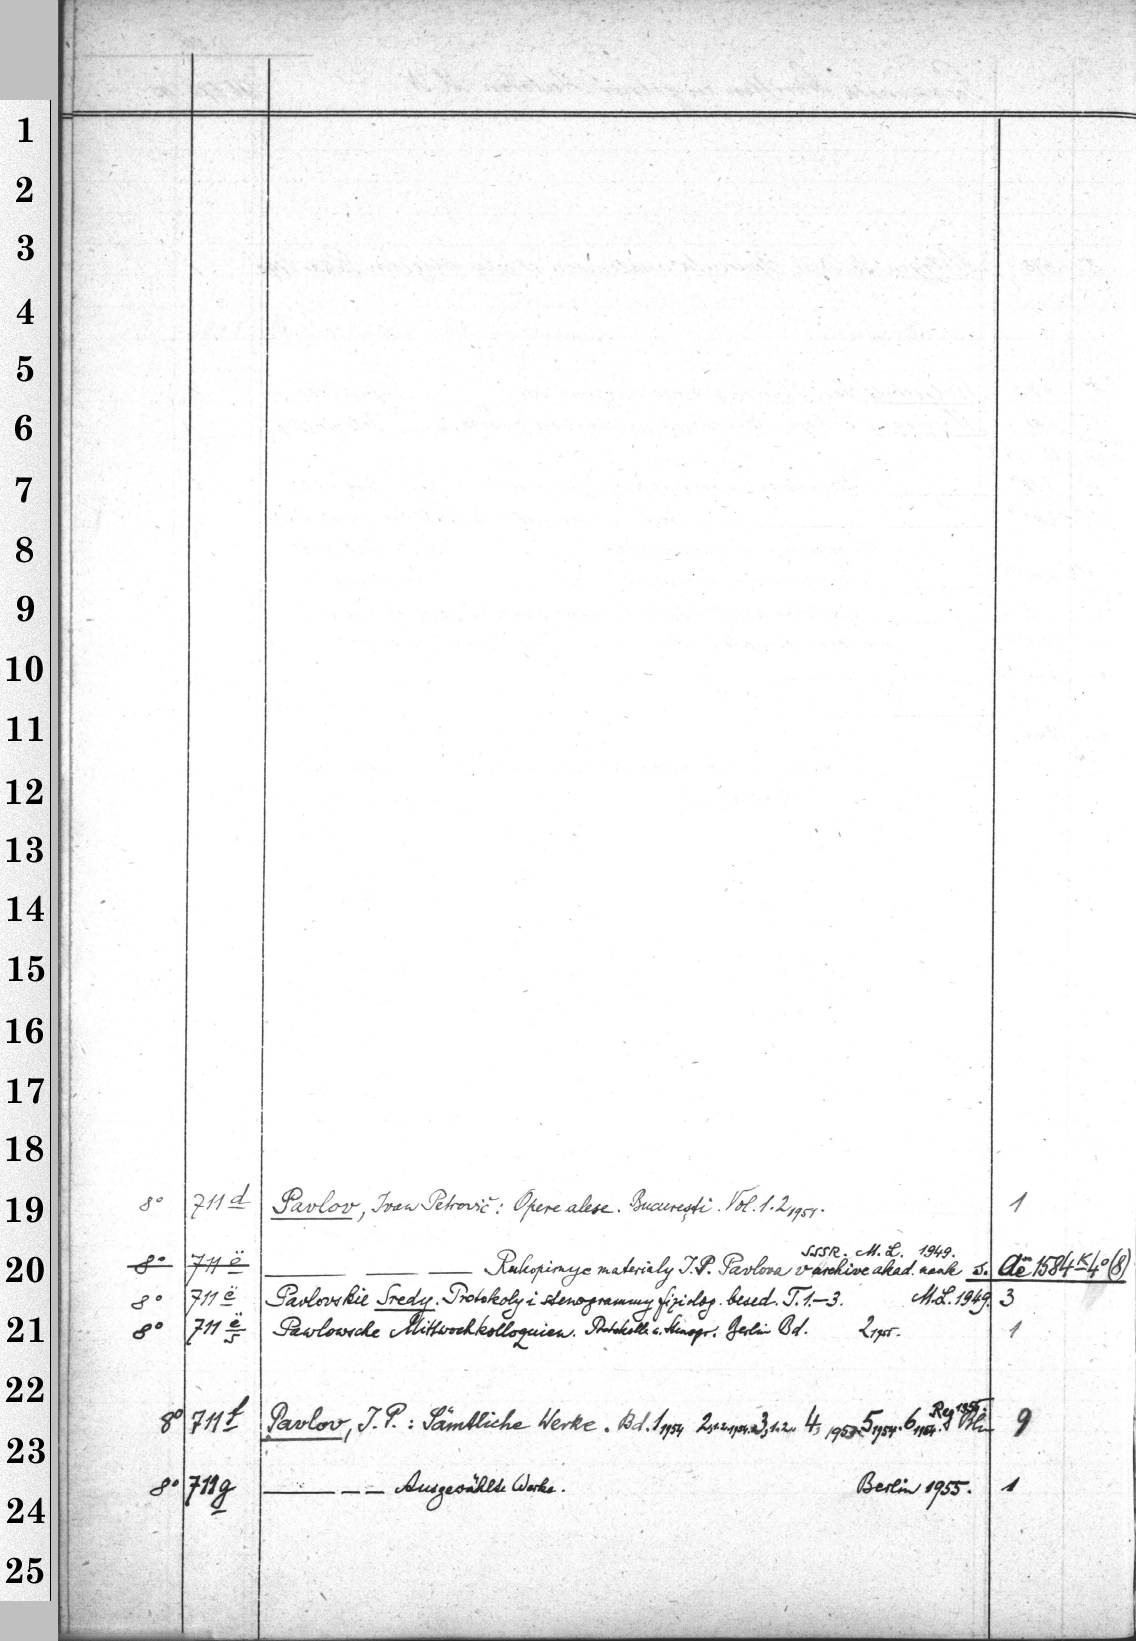 1
2
3
4
5
6
7
8
9
10
11
12
13
14
15
16
17
18
19
8° 711 d Pavlov, Ivan Petrovič: Opere alese. Bucureşti. Vol. 1. 2 1951. 1
SSSR. M. L. 1949.
20
8° 711 ë Rukopisnye materialy I. P. Pavlova v archive akad. nauk s. Aë 1584 K 4° (8)
8° 711 ë Pavlovskie Sredy. Protokoly i stenogrammy fiziolog. besed. T. 1.–3. M. L. 1949. 3
21
8° 711 ë/5 Pawlowsche Mittwochkolloquien. Protokolle u. Stenogr. Berlin Bd. 2 1955. 1
22
8° 711 f Pavlov, I. P.: Sämtliche Werke. Bd. 1 1954 2, 1. 2. 1954. 3, 1. 2. 4, 1953. 5 1954. 6 1954. Reg 1955. Bln 9
23
8° 711 g Ausgewählte Werke. Berlin 1955. 1
24
25